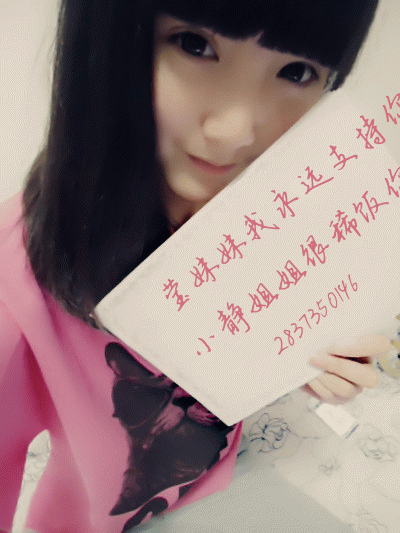 莹妹妹我永远支持你
小静姐姐很稀饭你
2837350146